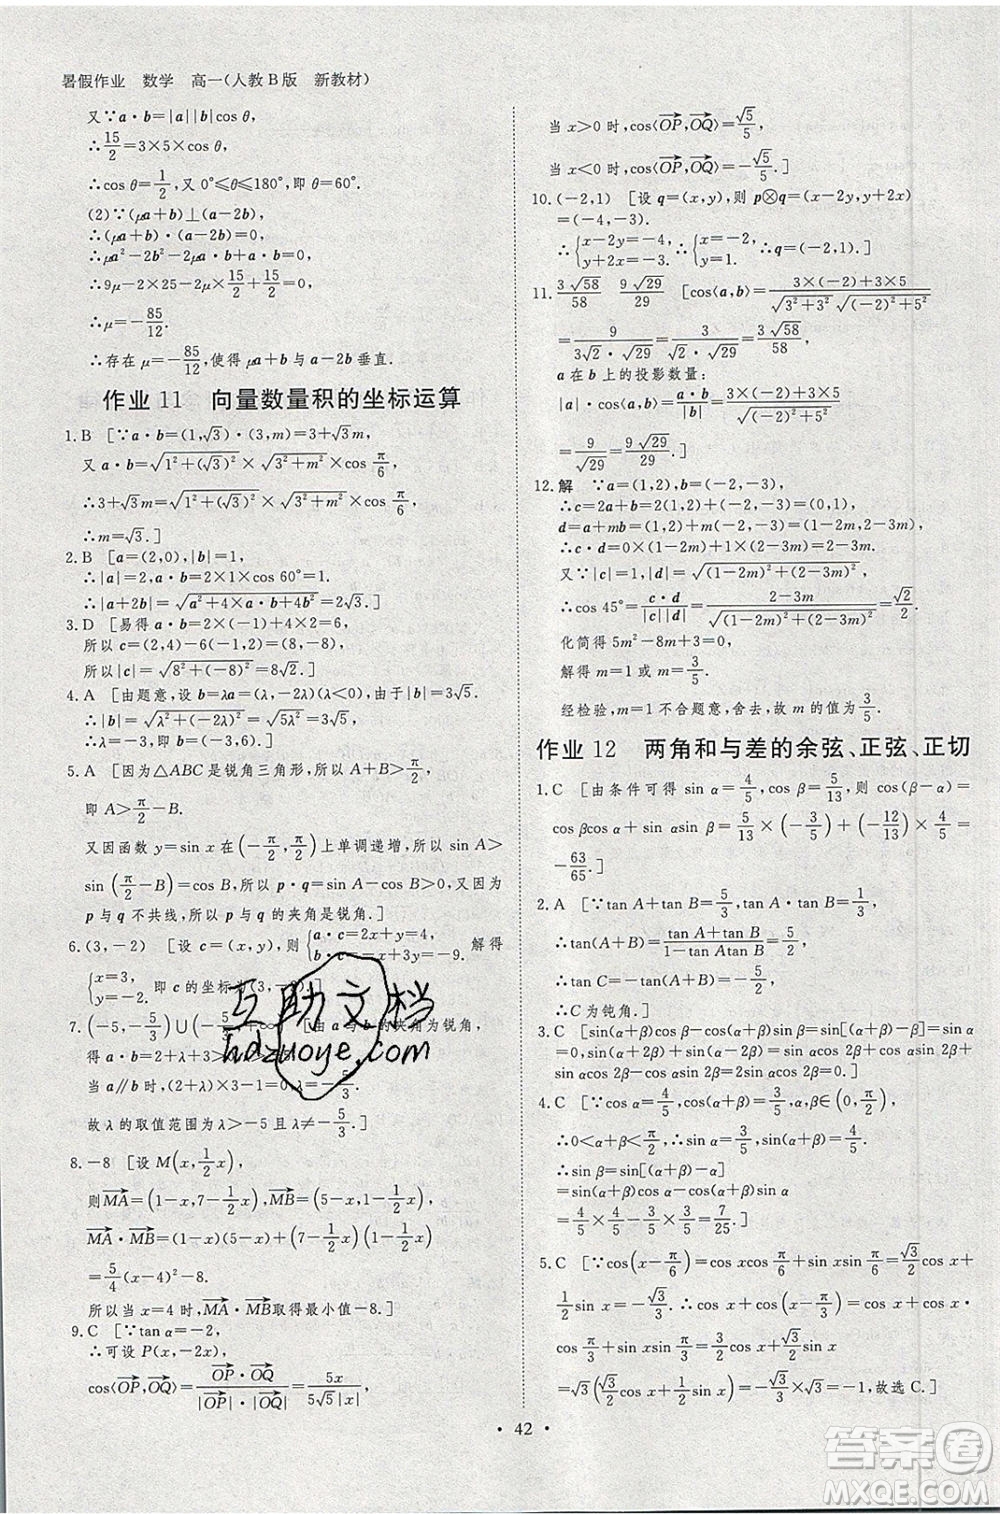 暑假作业　数学　高一(人教B版　新教材)
又∵a·b=|a||b|cos θ,
∴15/2=3×5×cos θ,
∴cos θ=1/2,又0°≤θ≤180°,即θ=60°.
(2)∵(μa+b)⊥(a-2b),
∴(μa+b)·(a-2b)=0,
∴μa²-2b²-2μa·b+a·b=0,
∴9μ-2×25-2μ×15/2+15/2=0,
∴μ=-85/12.
∴存在μ=-85/12,使得μa+b与a-2b垂直.
作业11　向量数量积的坐标运算
1.B　[∵a·b=(1,√3)·(3,m)=3+√3m,
又a·b=√(1²+(√3)²)×√(3²+m²)×cos π/6,
∴3+√3m=√(1²+(√3)²)×√(3²+m²)×cos π/6,
∴m=√3.]
2.B　[a=(2,0),|b|=1,
∴|a|=2,a·b=2×1×cos 60°=1.
∴|a+2b|=√(a²+4×a·b+4b²)=2√3.]
3.D　[易得a·b=2×(-1)+4×2=6,
所以c=(2,4)-6(-1,2)=(8,-8),
所以|c|=√(8²+(-8)²)=8√2.]
4.A　[由题意,设b=λa=(λ,-2λ)(λ<0),由于|b|=3√5.
∴|b|=√(λ²+(-2λ)²)=√(5λ²)=3√5,
∴λ=-3,即b=(-3,6).]
5.A　[因为△ABC是锐角三角形,所以A+B>π/2,
即A>π/2-B.
又因函数y=sin x在(-π/2,π/2)上单调递增,所以sin A>
sin(π/2-B)=cos B,所以p·q=sin A-cos B>0,又因为
p与q不共线,所以p与q的夹角是锐角.]
6.(3,-2)　[设c=(x,y),则{a·c=3x-y=11,b·c=-x+3y=-9.　解得
{x=3,y=-2,即c的坐标为(3,-2).]
7.(-5,-5/3)∪(-5/3,+∞)　[由a与b的夹角为锐角,
得a·b>0,
当a∥b时,(2+λ)×3-1=0,λ=-5/3,
故λ的取值范围为λ>-5且λ≠-5/3.]
8.-8　[设M(x,1/2x),
则MA=(1-x,7-1/2x),MB=(5-x,1-1/2x),
MA·MB=(1-x)(5-x)+(7-1/2x)(1-1/2x)
=5/4(x-4)²-8.
所以当x=4时,MA·MB取得最小值-8.]
9.C　[∵tan α=-2,
∴可设P(x,-2x),
cos⟨OP,OQ⟩=OP·OQ/|OP|·|OQ|=5x/5√5|x|,
当x>0时,cos⟨OP,OQ⟩=√5/5,
当x<0时,cos⟨OP,OQ⟩=-√5/5.]
10.(-2,1)　[设q=(x,y),则p⊗q=(x-2y,y+2x)
=(-4,-3).
∴{x-2y=-4,y+2x=-3.∴{x=-2,y=1.∴q=(-2,1).]
11.3√58/58　9√29/29　[cos⟨a,b⟩=3×(-2)+3×5/√(3²+3²)√((-2)²+5²)
=9/3√2·√29=3/√2·√29=3√58/58.
a在b上的投影数量为
|a|·cos⟨a,b⟩=a·b/|b|=3×(-2)+3×5/√((-2)²+5²)
=9/√29=9√29/29.]
12.解　∵a=(1,2),b=(-2,-3),
∴c=2a+b=2(1,2)+(-2,-3)=(0,1),
d=a+mb=(1,2)+m(-2,-3)=(1-2m,2-3m),
∴c·d=0×(1-2m)+1×(2-3m)=2-3m.
又∵|c|=1,|d|=√((1-2m)²+(2-3m)²),
∴cos 45°=c·d/|c||d|=2-3m/√((1-2m)²+(2-3m)²)=√2/2.
化简得5m²-8m+3=0,
解得m=1或m=3/5.
经检验,m=1不合题意,舍去,故m的值为3/5.
作业12　两角和与差的余弦、正弦、正切
1.C　[由条件可得sin α=4/5,cos β=5/13,则cos(β-α)=
cos βcos α+sin αsin β=5/13×(-3/5)+(-12/13)×4/5=
-63/65.]
2.A　[∵tan A·tan B=tan A+5/3=1/3,
∴tan(A+B)=tan A+tan B/1-tan Atan B=5/2,
∴tan C=-tan(A+B)=-5/2,
∴C为钝角.]
3.C　[sin(α+β)cos(α-β)=sin[(α+β)-β]cos(α-β)=
sin(α+β)cos 2β-cos(α+β)sin 2β]
4.C　[∵sin α=3/5,cos(α+β)=3/5,α,β∈(0,π/2),
∴0<α+β<π/2,∴cos α=4/5,sin(α+β)=4/5.
∴sin β=sin[(α+β)-α]
=sin(α+β)cos α-cos(α+β)sin α
=4/5×4/5-3/5×3/5=7/25.]
5.C　[∵cos(x-π/6)=cos xcos π/6+sin xsin π/6=√3/2cos x+
1/2sin x=-√3/3,∴cos x+cos(x-π/3)=cos x+cos x·
cos π/3+sin xsin π/3=3/2cos x+√3/2sin x
=√3(√3/2cos x+1/2sin x)=√3×(-√3/3)=-1,故选C.]
· 42 ·
互助文档
hdzuoye.com
答案卷
MXQE.COM